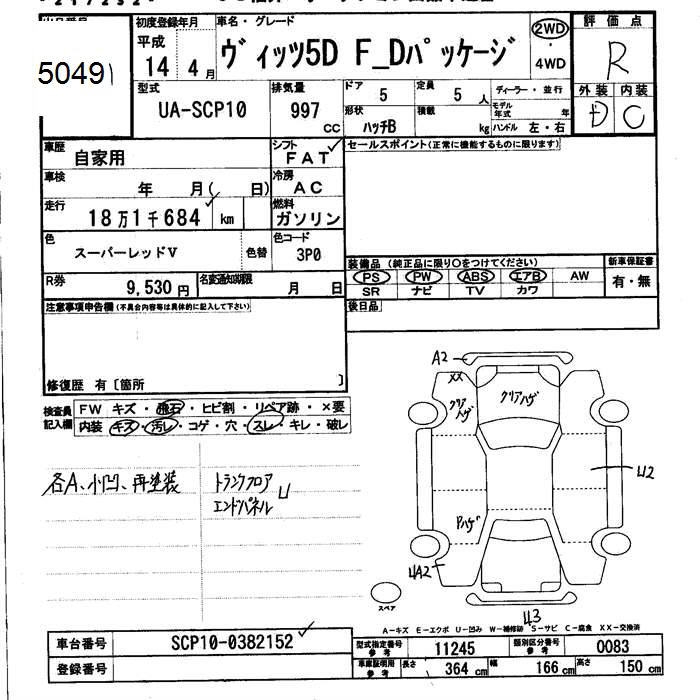 50491
初度登録年月
平成
14 4月
車名・グレード
ヴィッツ5D F_Dパッケージ
2WD
・
4WD
評価点
R
外装 内装
D C
型式
UA-SCP10
排気量
997
CC
ドア 5
定員 5 人
形状 ハッチB
積載 kg
ディーラー・並行
モデル年式 年
ハンドル 左・右
車歴 自家用
シフト FAT
セールスポイント(正常に機能するものに限ります)
車検 年 月( 日)
冷房 AC
走行 18万1千684 km
燃料 ガソリン
色 スーパーレッドV
色替
色コード 3P0
装備品(純正品に限り○をつけてください)
新車保証書
PS PW ABS エアB AW
有・無
SR ナビ TV カワ
R券 9,530円
名変通知期限 月 日
後日品
注意事項申告欄(不具合内容等は具体的に記入して下さい)
修復歴 有〔箇所 〕
検査員記入欄
FW キズ・飛石・ヒビ割・リペア跡・×要
内装 キズ・汚レ・コゲ・穴・スレ・キレ・破レ
各A、小凹、再塗装
トランクフロア U
エンドパネル
A2
XX
クリアハゲ
クリアハゲ
U2
Pハゲ
UA2
スペア
U3
A-キズ E-エクボ U-凹み W-補修跡 S-サビ C-腐食 XX-交換済
車台番号 SCP10-0382152
型式指定番号 参考 11245
類別区分番号 参考 0083
登録番号
車庫証明用 参考 長さ 364 cm 幅 166 cm 高さ 150 cm